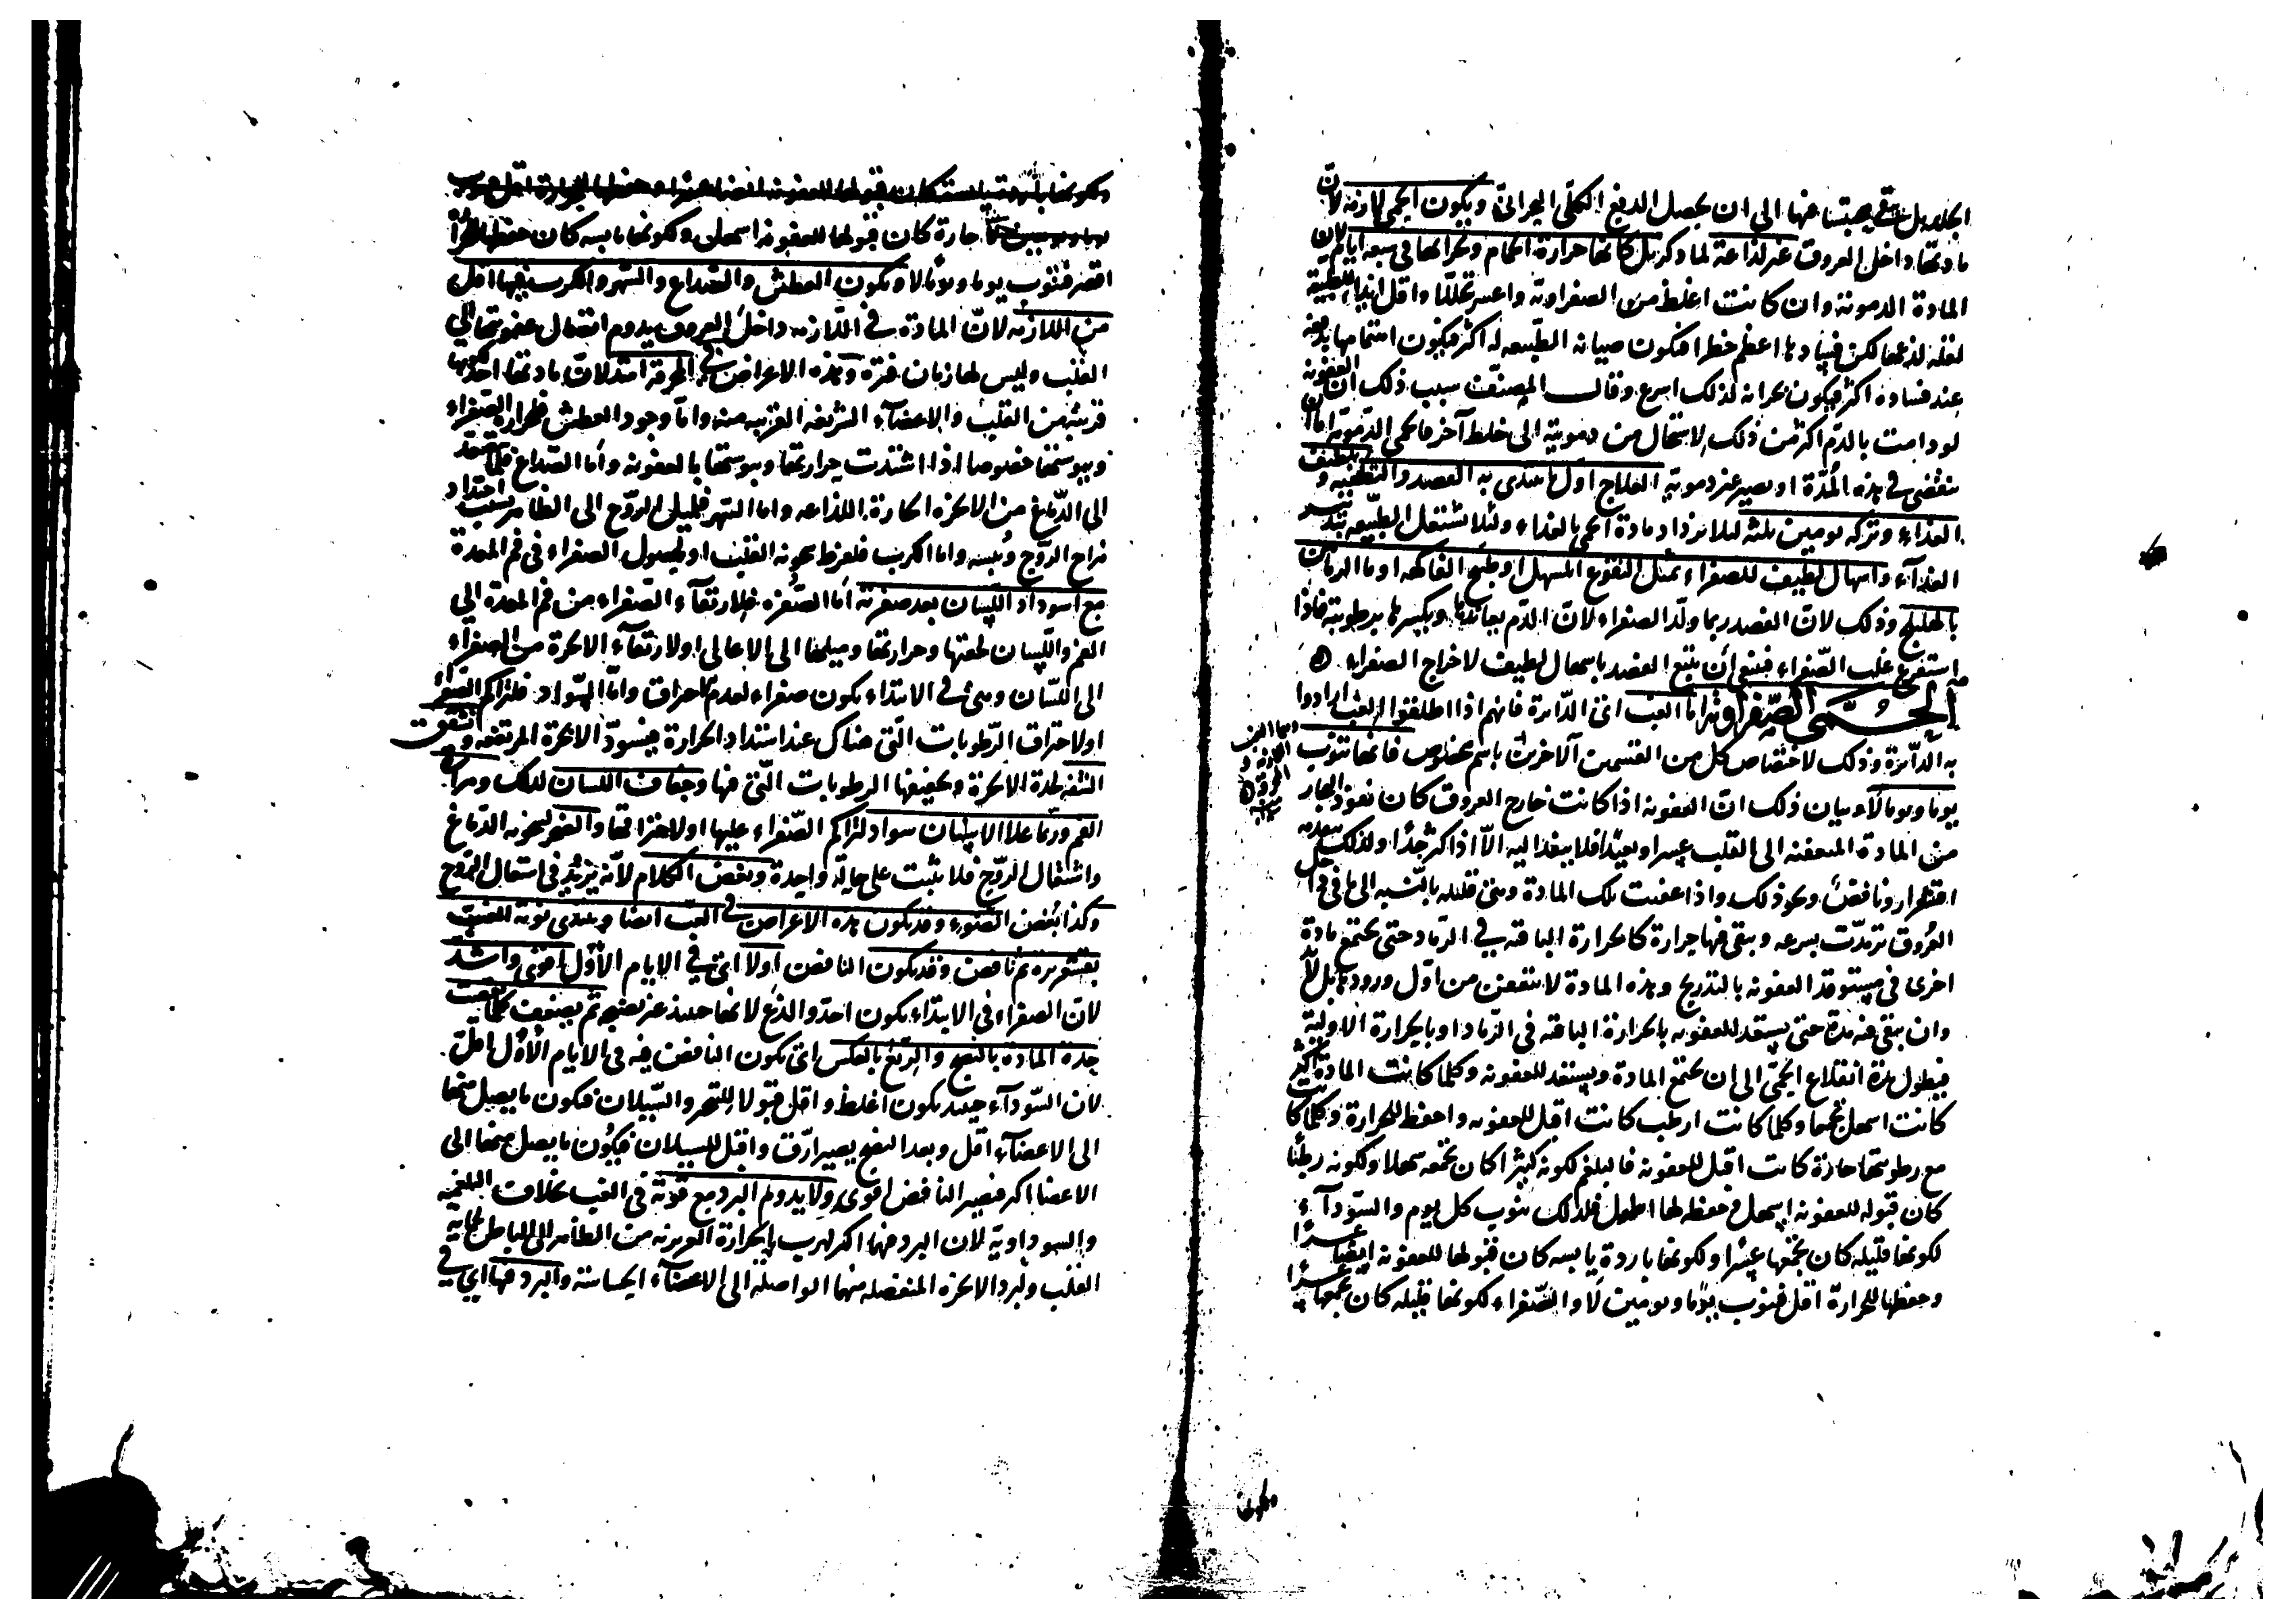 الجلد بل يبقى صبتنا عنها الى ان يحصل الدفع الكلّى البحرانى ويكون الحمى لازمة لان
مادتها داخل العروق غير لذاعة لما ذكر بل كانها حرارة الحمام وبحرانها فى سبعة ايام لان
المادة الدموية وان كانت اغلظ من الصفراوية واعسر تحللا واقل ايذاء للطبيعة
لقلة لذعها لكن فسادها اعظم خطرا فيكون صيانة الطبيعة له اكثر فيكون اهتمامها بدفعه
عند فساده اكثر فيكون بحرانه لذلك اسرع وقال المصنف سبب ذلك ان العفونة
لو دامت بالدم اكثر من ذلك لاستحال من دموية الى خلط آخر فالحمى الدموية اما ان
تنقضى فى هذه المدة او تصير غير دموية العلاج اول ما يبتدى به الفصد والتطفية وتلطيف
الغذاء وتركه يومين ثلثة لئلا يزداد مادة الحمى بالغذاء ولئلا تشتغل الطبيعة بتدبير
الغذاء واسهال لطيف للصفراء بمثل النقوع المسهل او طبيخ الفاكهة او ماء الرمان
بالهليلج وذلك لان الفصد ربما ولد الصفراء لان الدم يعاندها ويكسرها برطوبته فاذا
استفرغ غلب الصفراء فينبغى ان يتبع الفصد باسهال لطيف لاخراج الصفراء
الحمى الصفراوية اما الغب اى الدائرة فانهم اذا اطلقوا الغب ارادوا
به الدائرة وذلك لاختصاص كل من القسمين الآخرين باسم مخصوص فانها تنوب
يوما ويوما لا وبيان ذلك ان العفونة اذا كانت خارج العروق كان نفوذ البخار
من المادة المتعفنة الى القلب عسرا وبعيدا فلا ينفذ اليه الا اذا كثر جدا ولذلك يتقدمه
اقشعرار ونافض ونحو ذلك واذا عفنت تلك المادة وهى قليلة بالنسبة الى ما فى داخل
العروق ترمدت بسرعة ويبقى فيها حرارة كالحرارة الباقية فى الرماد حتى يجتمع مادة
اخرى فى مستوقد العفونة بالتدريج وهذه المادة لا تتعفن من اول ورودها بل لا بد
وان يبقى فيه مدة حتى يستعد للعفونة بالحرارة الباقية فى الرماد او بالحرارة الاولية
فيطول مدة انقلاع الحمى الى ان يجتمع المادة ويستعد للعفونة وكلما كانت المادة اكثر
كانت اسهل تجمعا وكلما كانت ارطب كانت اقبل للعفونة واحفظ للحرارة وكلما كانت
مع رطوبتها حارة كانت اقبل للعفونة فالبلغم لكونه كثيرا كان تجمعه سهلا ولكونه رطبا
كان قبوله للعفونة اسهل وحفظه لها اطول فلذلك ينوب كل يوم والسوداء
لكونها قليلة كان تجمعها عسرا ولكونها باردة يابسة كان قبولها للعفونة ايضا عسرا
وحفظها للحرارة اقل فينوب يوما ويومين لا والصفراء لكونها قليلة كان تجمعها عسرا
حارة كان قبولها للعفونة اسهل ولكونها يابسة كان حفظها للحرارة
اقصر فتنوب يوما ويوما لا ويكون العطش والصداع والسهر والكرب فيها اقل
من اللازمة لان المادة فى اللازمة داخل العروق يدوم اتصال عفونتها الى
القلب وليس لها زمان فترة وهذه الاعراض فى المحرقة اشد لان مادتها احد لكونها
قريبة من القلب والاعضاء الشريفة القريبة منه واما وجود العطش فلحرارة الصفراء
ويبوستها خصوصا اذا اشتدت حرارتها ويبوستها بالعفونة واما الصداع فلما يتصعد
الى الدماغ من الابخرة الحارة اللذاعة واما السهر فلميل الروح الى الظاهر بسبب احتداد
مزاج الروح ويبسه واما الكرب فلفرط سخونة القلب او لحصول الصفراء فى فم المعدة
مع اسوداد اللسان بعد صفرته اما الصفرة فلارتقاء الصفراء من فم المعدة الى
الفم واللسان لخفتها وحرارتها وميلها الى الاعالى او لارتقاء الابخرة من الصفراء
الى اللسان وهى فى الابتداء يكون صفراء لعدم احتراق واما السواد فلتراكم الصفراء
او لاحتراق الرطوبات التى هناك عند اشتداد الحرارة فيسود الابخرة المرتفعة وتشقق
الشفة لحدة الابخرة وتجفيفها الرطوبات التى فيها وجفاف اللسان لذلك ومرارة
الفم وربما علا الاسنان سواد لتراكم الصفراء عليها او لاحتراقها والضجر لسخونة الدماغ
واشتعال الروح فلا يثبت على حالة واحدة وبغض الكلام لانه يزيد فى اشتعال الروح
وكذا بغض الضوء وقد يكون هذه الاعراض فى الغب ايضا ويبتدى نوبة الغب
بقشعريرة ثم نافض وقد يكون النافض اولا اى فى الايام الاول اقوى واشد
لان الصفراء فى الابتداء يكون احد والذع لانها حينئذ غير نضيجة ثم يضعف كلما ضعفت
حدة المادة بالنضج والربع بالعكس اى يكون النافض فيه فى الايام الاول اقل
لان السوداء حينئذ يكون اغلظ واقل قبولا للتبخر والسيلان فيكون ما يصل منها
الى الاعضاء اقل وبعد النضج يصير ارق واقبل للسيلان فيكون ما يصل منها الى
الاعضاء اكثر فيصير النافض اقوى ولا يدوم البرد مع قوته فى الغب بخلاف البلغمية
والسوداوية لان البرد فيهما اكثر لهرب الحرارة الغريزية من الظاهر الى الباطن لحماية
القلب ولبرد الابخرة المنفصلة منهما الواصلة الى الاعضاء الحساسة والبرد فيها اى فى